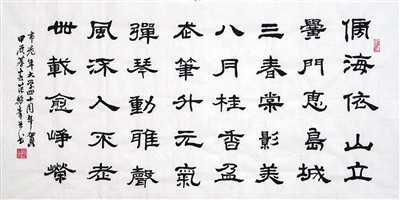 傍海依山立
黌門惠島城
三春棠影美
八月桂香盈
走筆升元氣
彈琴動雅聲
風深人不老
卌載愈崢嶸
市老年大学四十周年賀
甲辰 春 書